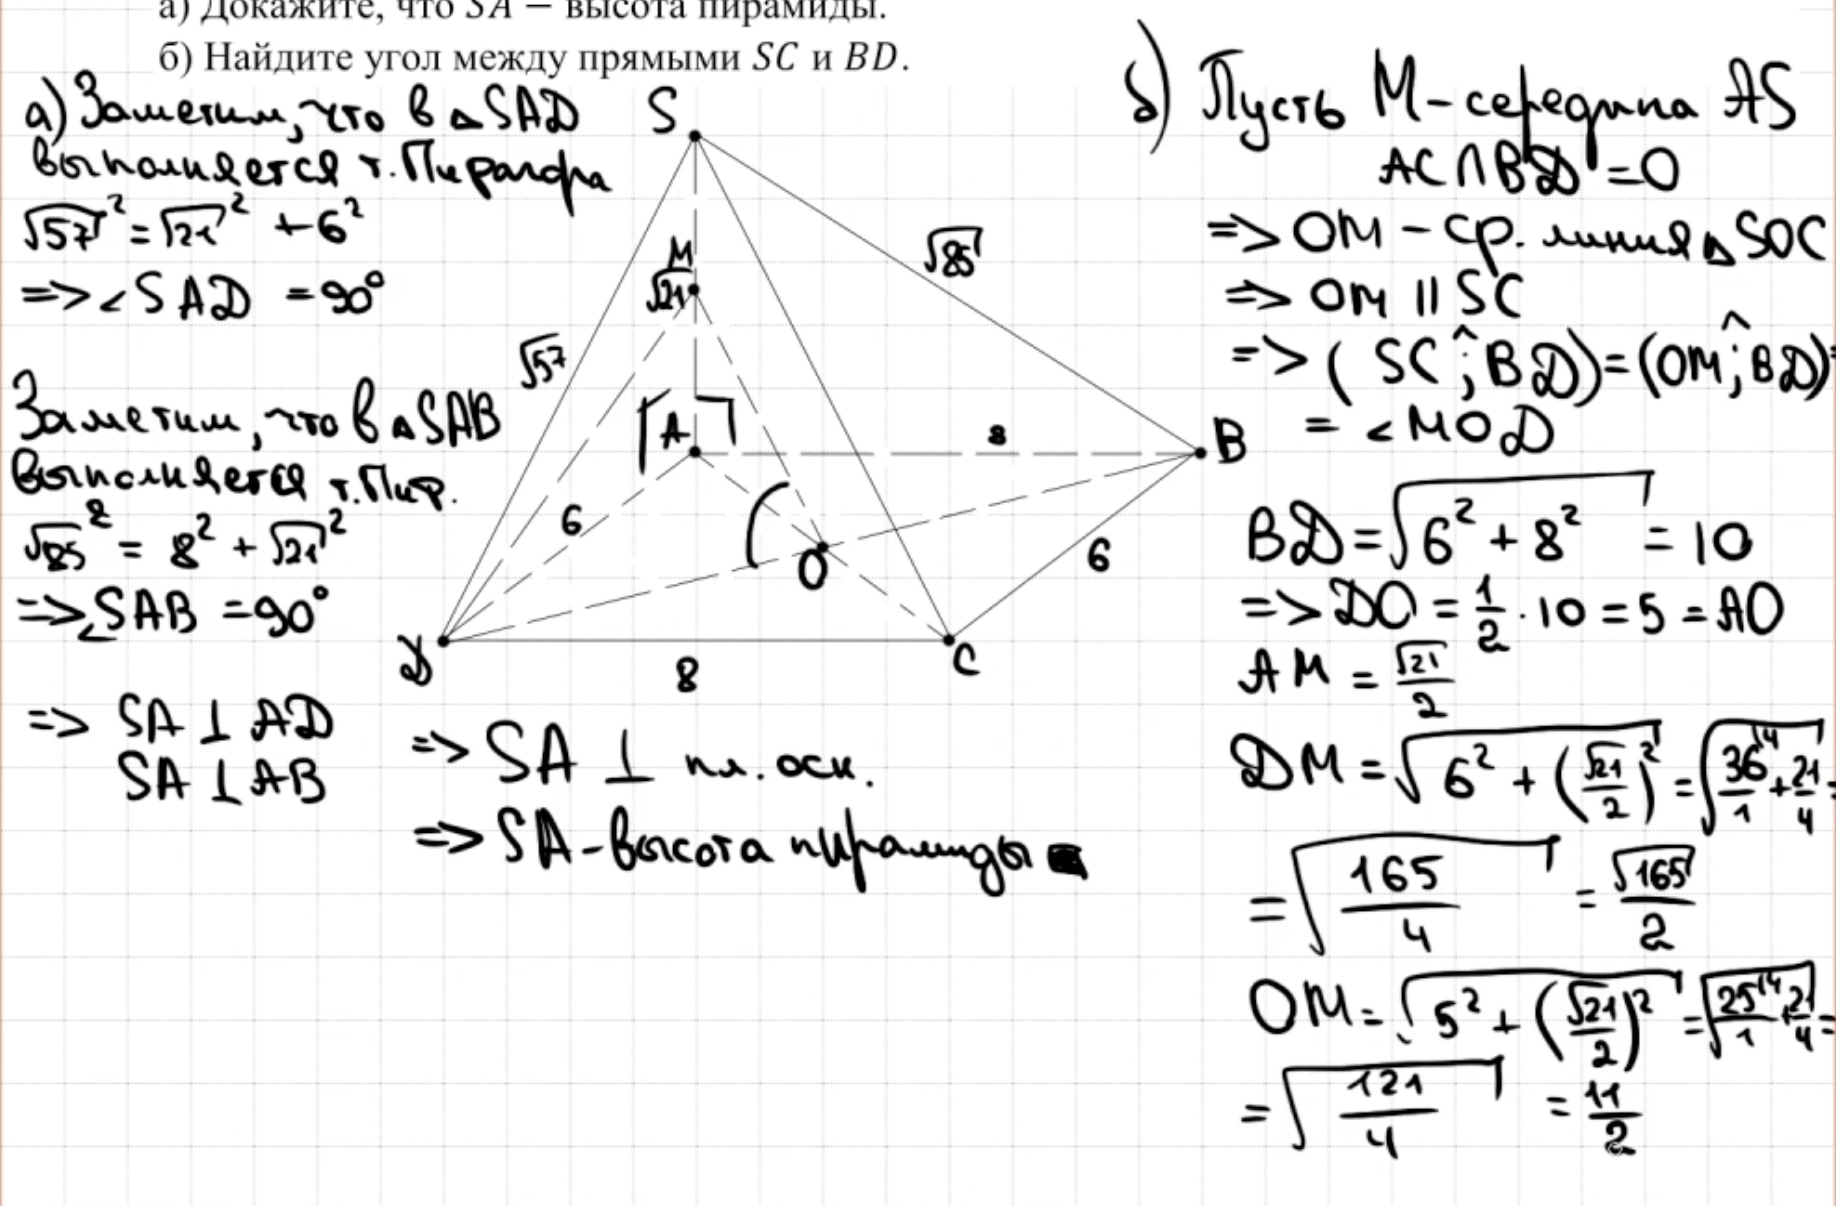 а) Докажите, что SA − высота пирамиды.
б) Найдите угол между прямыми SC и BD.
а) Заметим, что в △SAD
выполняется т. Пифагора
√57² = √21² + 6²
=> ∠SAD = 90°
Заметим, что в △SAB
выполняется т. Пиф.
√85² = 8² + √21²
=> ∠SAB = 90°
=> SA ⊥ AD
SA ⊥ AB
=> SA ⊥ пл. осн.
=> SA - высота пирамиды
S
M
√21
√57
√85
A
8
B
6
O
6
D
8
C
б) Пусть M - середина AS
AC ∩ BD = O
=> OM - ср. линия △SOC
=> OM || SC
=> (SC ^; BD) = (OM ^; BD) =
= ∠MOD
BD = √(6² + 8²) = 10
=> DO = 1/2 · 10 = 5 = AO
AM = √21/2
DM = √(6² + (√21/2)²) = √(36/1 ⁽⁴ + 21/4) =
= √(165/4) = √165/2
OM = √(5² + (√21/2)²) = √(25/1 ⁽⁴ + 21/4) =
= √(121/4) = 11/2